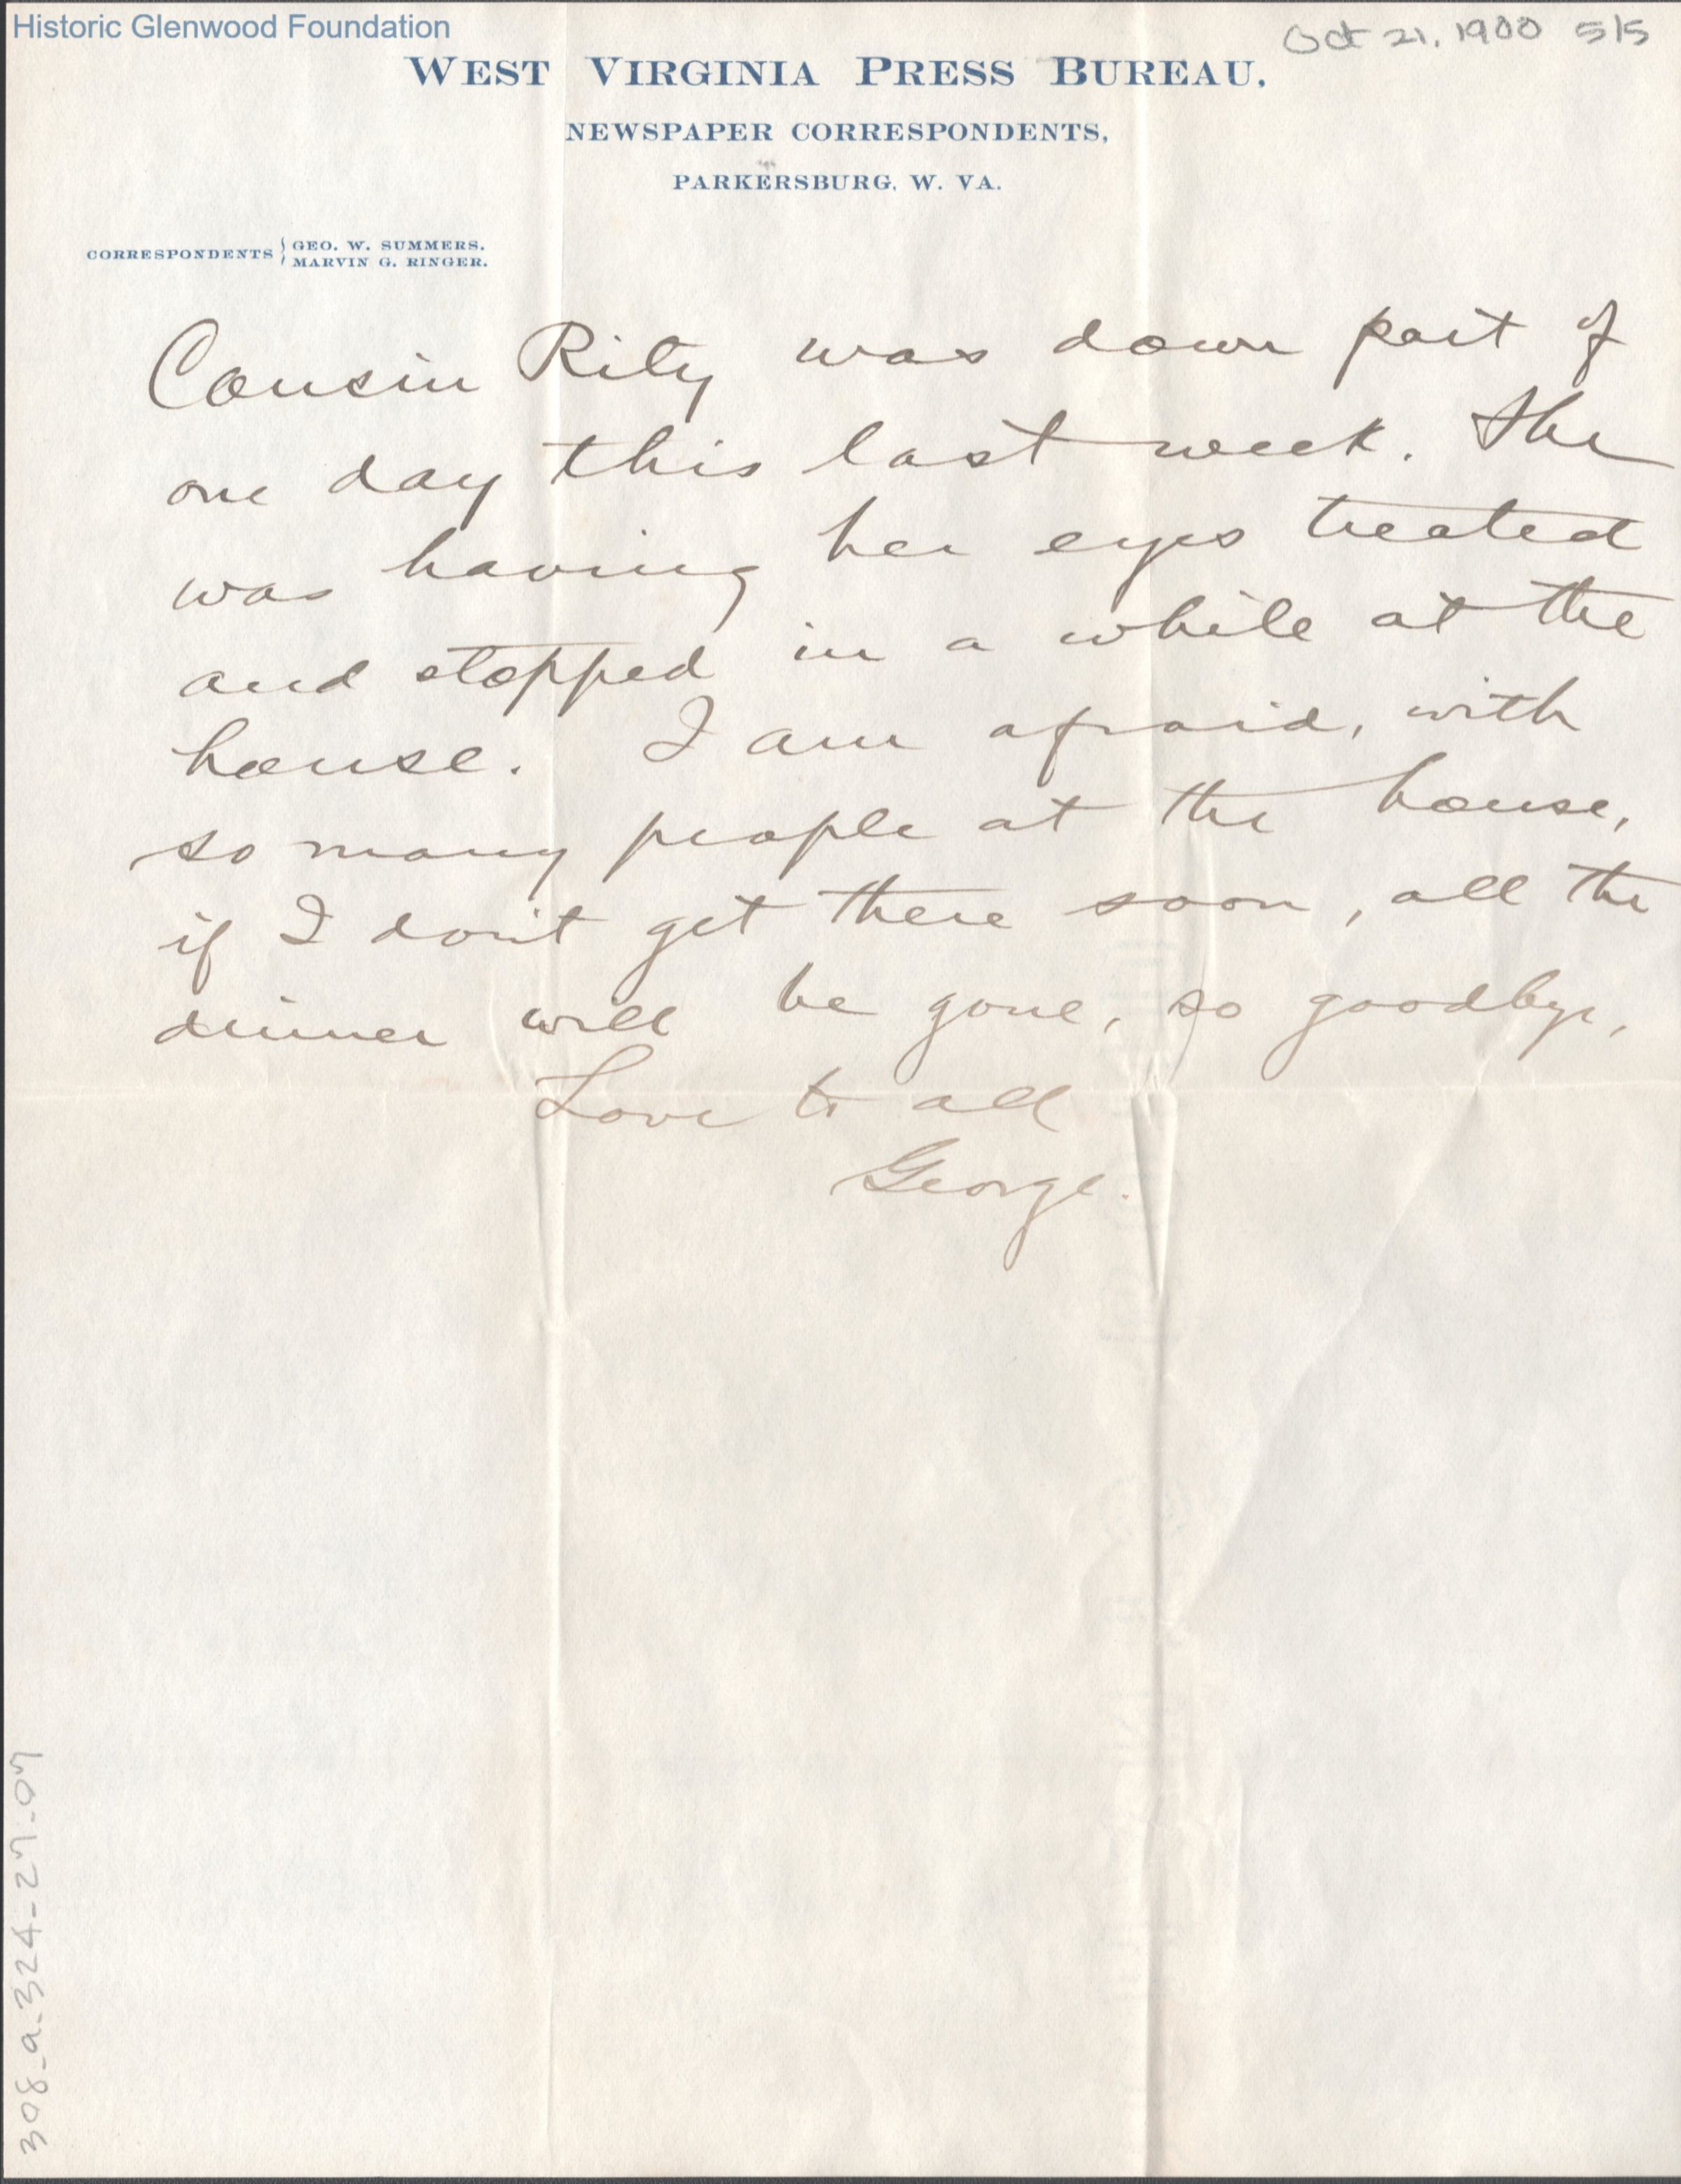 Historic Glenwood Foundation
Oct 21, 1900 5/5
WEST VIRGINIA PRESS BUREAU,
NEWSPAPER CORRESPONDENTS,
PARKERSBURG, W. VA.
CORRESPONDENTS { GEO. W. SUMMERS.
MARVIN G. RINGER.
Cousin Rity was down part of
one day this last week. She
was having her eyes treated
and stopped in a while at the
house. I am afraid, with
so many people at the house,
if I don't get there soon, all the
dinner will be gone, so goodbye,
Love to all
George.
308-a-324-27-07